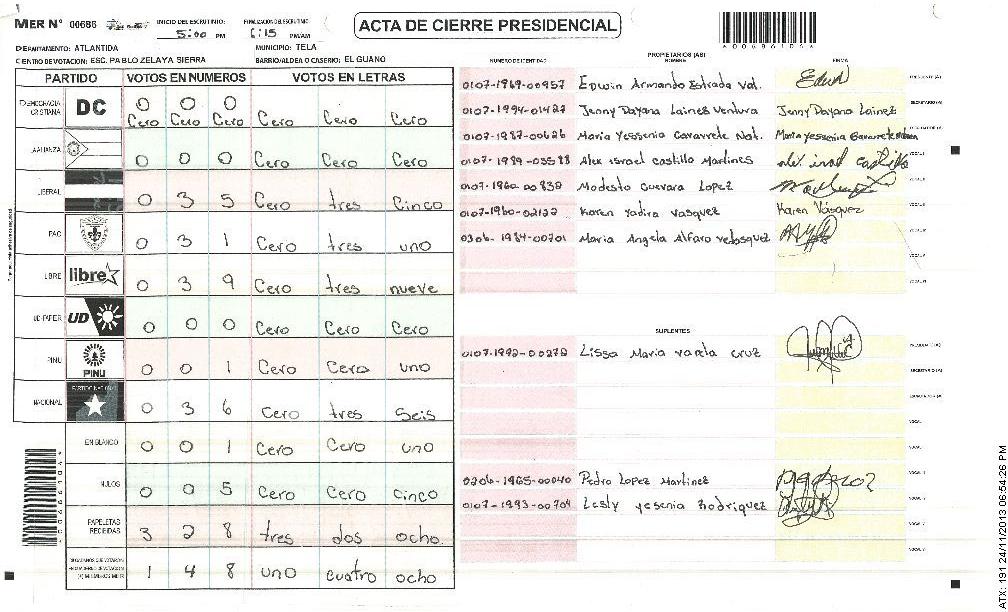 MER N° 00686
INICIO DEL ESCRUTINIO: 5:00 PM
FINALIZACION DEL ESCRUTINIO: 6:15 PM/AM
ACTA DE CIERRE PRESIDENCIAL
DEPARTAMENTO: ATLANTIDA
MUNICIPIO: TELA
CENTRO DE VOTACION: ESC. PABLO ZELAYA SIERRA
BARRIO/ALDEA O CASERIO: EL GUANO
PARTIDO VOTOS EN NUMEROS VOTOS EN LETRAS
DEMOCRACIA CRISTIANA DC 0 0 0 Cero Cero Cero Cero Cero Cero
ALIANZA 0 0 0 Cero Cero Cero
LIBERAL 0 3 5 Cero tres Cinco
PAC 0 3 1 Cero tres uno
LIBRE libre 0 3 9 Cero tres nueve
UD-FAPER UD 0 0 0 Cero Cero Cero
PINU PINU 0 0 1 Cero Cero uno
NACIONAL PARTIDO NACIONAL 0 3 6 Cero tres Seis
EN BLANCO 0 0 1 Cero Cero uno
NULOS 0 0 5 Cero Cero Cinco
PAPELETAS RECIBIDAS 3 2 8 tres dos ocho.
CIUDADANOS QUE VOTARON EN CUADERNO DE VOTACION (+) MIEMBROS MER 1 4 8 uno cuatro ocho
NUMERO DE IDENTIDAD PROPIETARIOS (AS) NOMBRE FIRMA
0107-1969-00957 Edwin Armando Estrada Val. PRESIDENTE (A)
0107-1994-01427 Jenny Dayana Laines Ventura Jenny Dayana Lainez SECRETARIO (A)
0107-1987-00626 Maria Yessenia Gavarrete Nat. Maria yessenia Gavarrete
0107-1989-03588 Alex Israel Castillo Martines
0107-1960-00838 Modesto Guevara Lopez
0107-1980-02122 Karen Yadira Vasquez Karen Vásquez
0306-1984-00701 Maria Angela Alfaro Velasquez
SUPLENTES
0107-1992-00272 Lissa Maria Varela Cruz PRESIDENTE (A)
SECRETARIO (A)
ESCRUTADOR (A)
VOCAL
0206-1965-00040 Pedro Lopez Martinez
0107-1993-00704 Lesly yesenia Rodriquez
ATX: 191 24/11/2013 06:54:26 PM